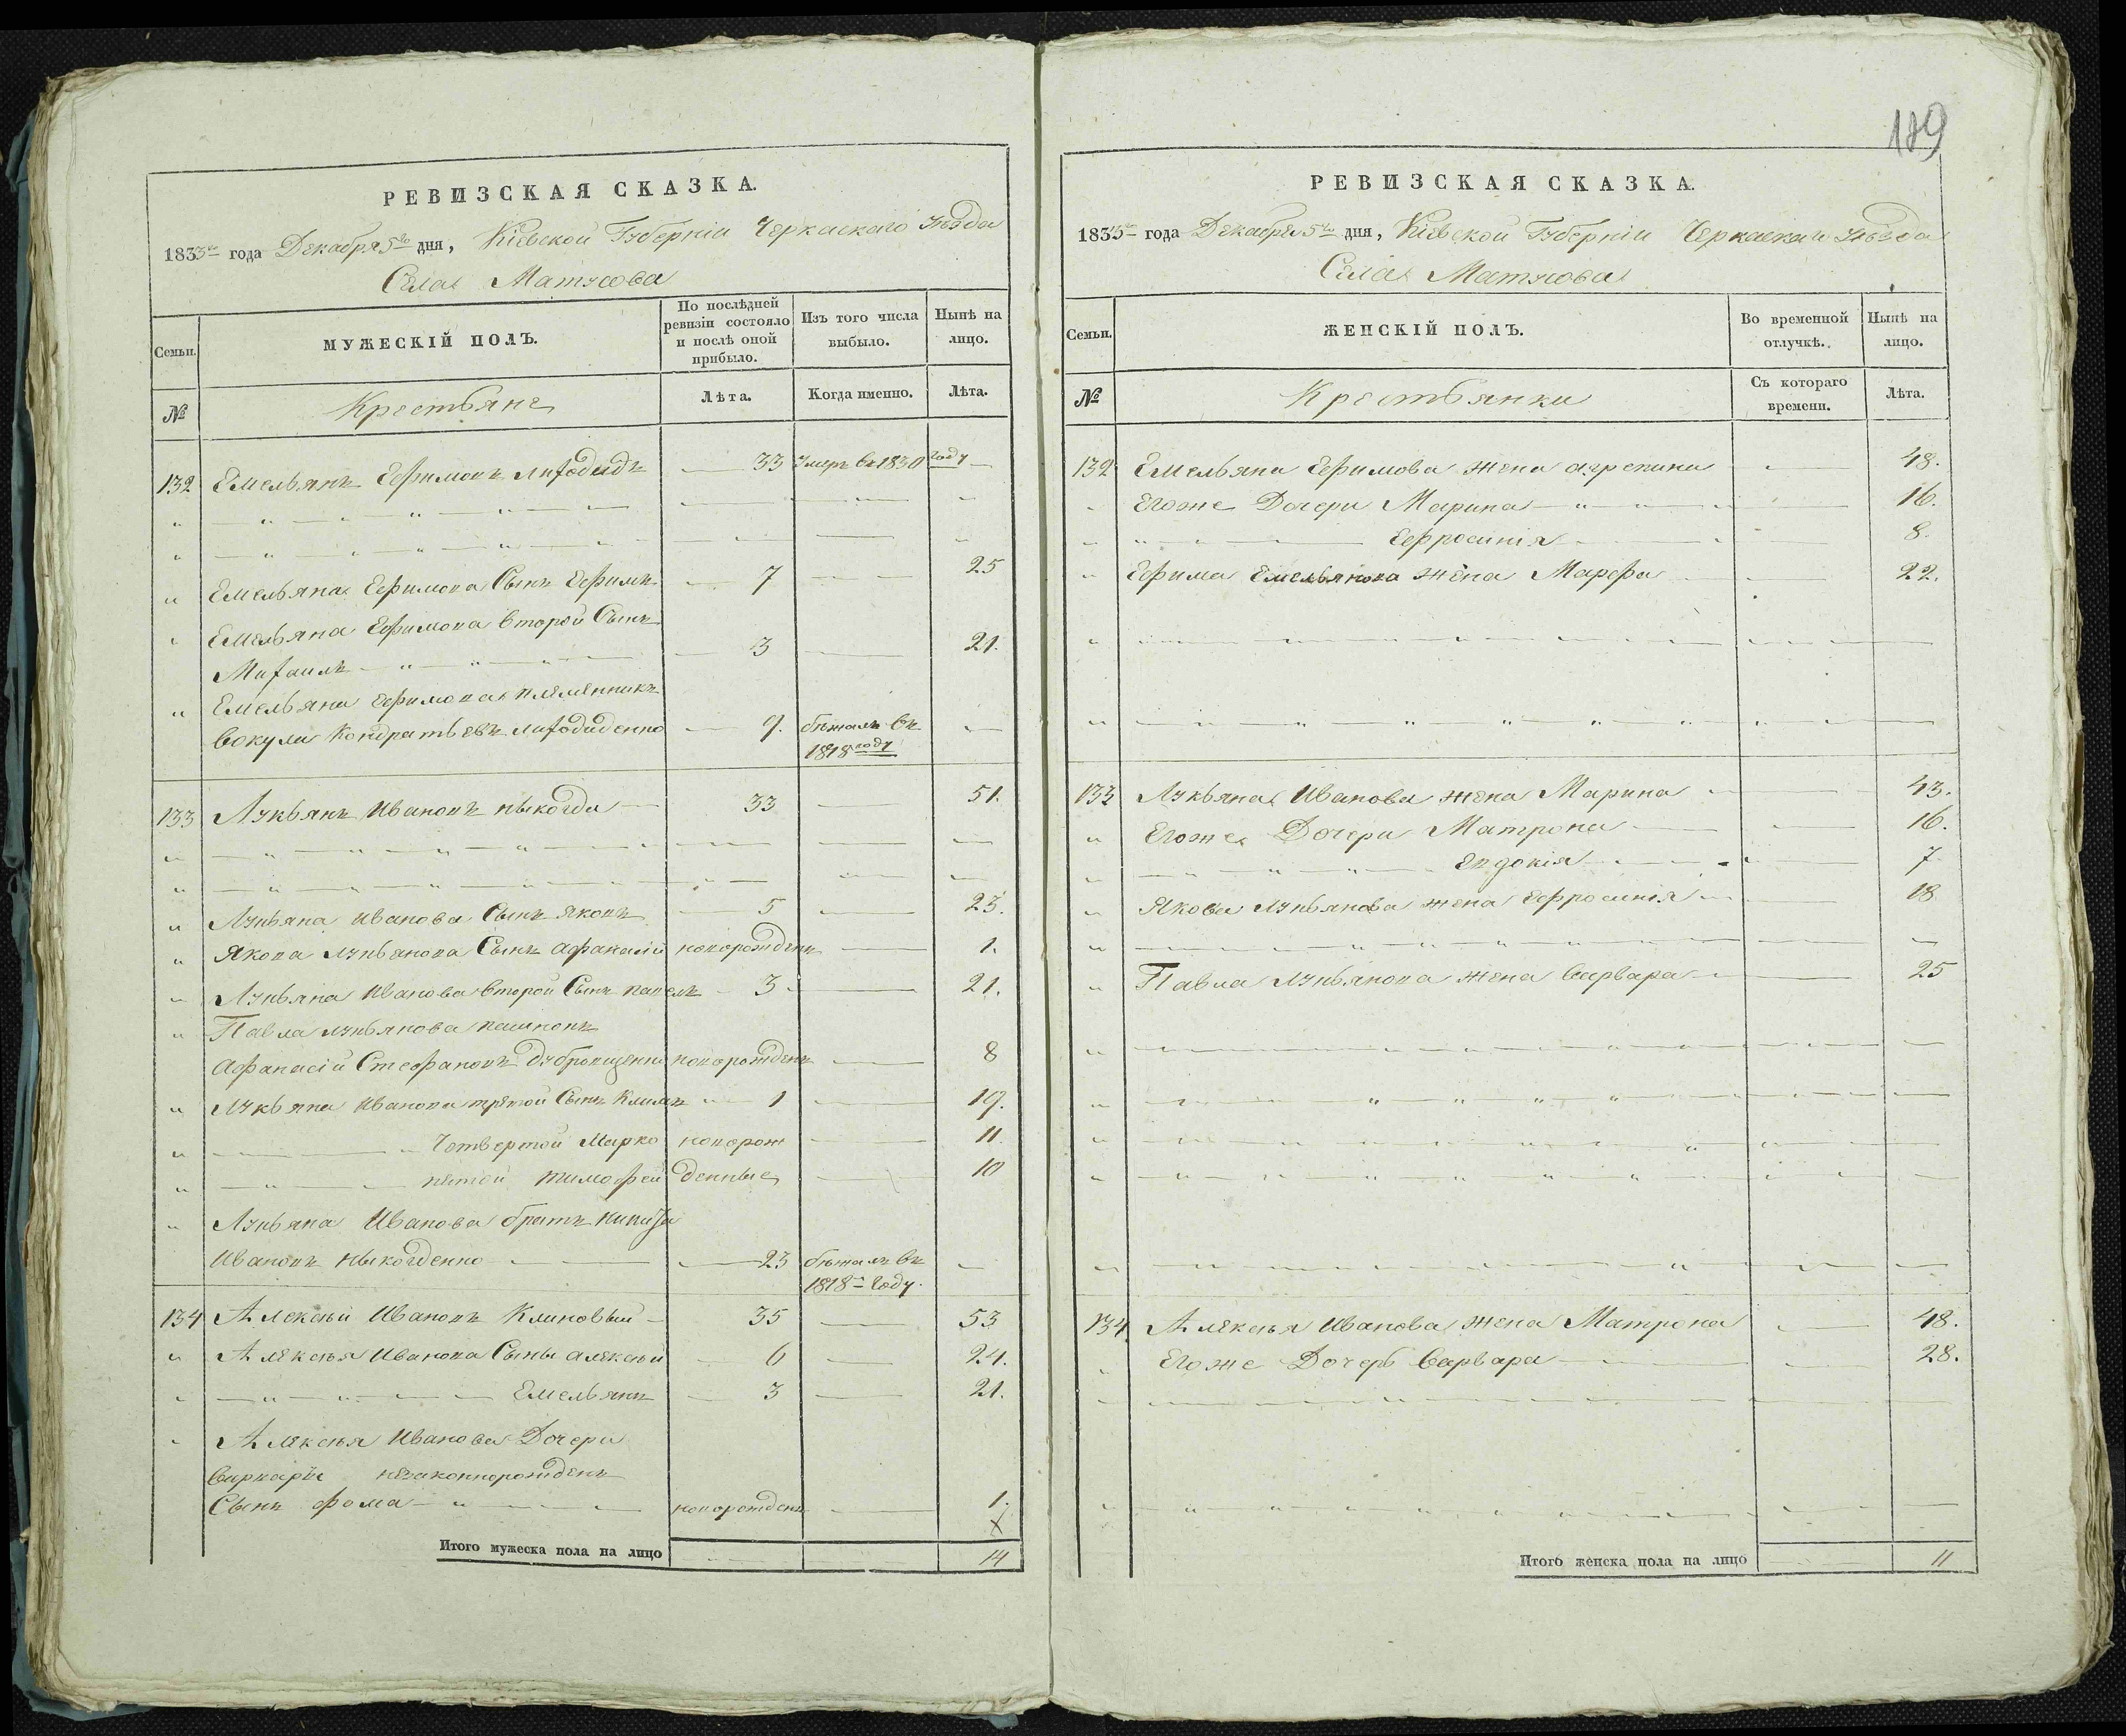 189
РЕВИЗСКАЯ СКАЗКА.
1835го года Декабря 5го дня, Кіевской Губерніи Черкаскаго Уѣзда
Села Матусова
Семьи.
МУЖЕСКІЙ ПОЛЪ.
По послѣдней ревизіи состояло и послѣ оной прибыло.
Изъ того числа выбыло.
Нынѣ на лицо.
№
Крестьяне
Лѣта.
Когда именно.
Лѣта.
132 Емельянъ Ефимовъ 33 Умеръ въ 1830 году
Емельяна Ефимова Сынъ Ефимъ 7 25
Емельяна Ефимова второй Сынъ
Михаилъ 3 21.
Емельяна Ефимова племенникъ
Вокула Кондратьевъ Лиходиденко 9. бѣжалъ въ
1818 году
133 Лукьянъ Ивановъ 33 51.
Лукьяна Иванова Сынъ Яковъ 5 23.
Якова Лукьянова Сынъ Афанасій новорожденъ 1.
Лукьяна Иванова второй Сынъ Павелъ 3 21.
Павла Лукьянова
Афанасій Стефановъ новорожденъ 8
Лукьяна Иванова третой Сынъ Климъ 1 19.
Четвертой Марко новорож 11.
пятой Тимофей денные 10
Лукьяна Иванова братъ Никита
Ивановъ 23 бѣжалъ въ
1818 году.
134 Алексѣй Ивановъ Клиновый 35 53
Алексѣя Иванова Сыны Алексѣй 6 24.
Емельянъ 3 21.
Алексѣя Иванова Дочери
незаконнорожденъ
Сынъ Фома новорожденъ 1.
Итого мужеска пола на лицо 14
РЕВИЗСКАЯ СКАЗКА.
1835го года Декабря 5го дня, Кіевской Губерніи Черкаскаго Уѣзда
Села Матусова
Семьи.
ЖЕНСКІЙ ПОЛЪ.
Во временной отлучкѣ.
Нынѣ на лицо.
№
Крестьянки
Съ котораго времени.
Лѣта.
132 Емельяна Ефимова жена Агрепина 48.
Егоже Дочери Марина 16.
Ефросинія 8.
Ефима Емельянова жена Марфа 22.
133 Лукьяна Иванова жена Марина 43.
Егоже Дочери Матрона 16.
Евдокія 7
Якова Лукьянова жена Ефросинія 18
Павла Лукьянова жена Варвара 25
134 Алексѣя Иванова жена Матрона 48.
Егоже Дочерь Варвара 28.
Итого женска пола на лицо 11